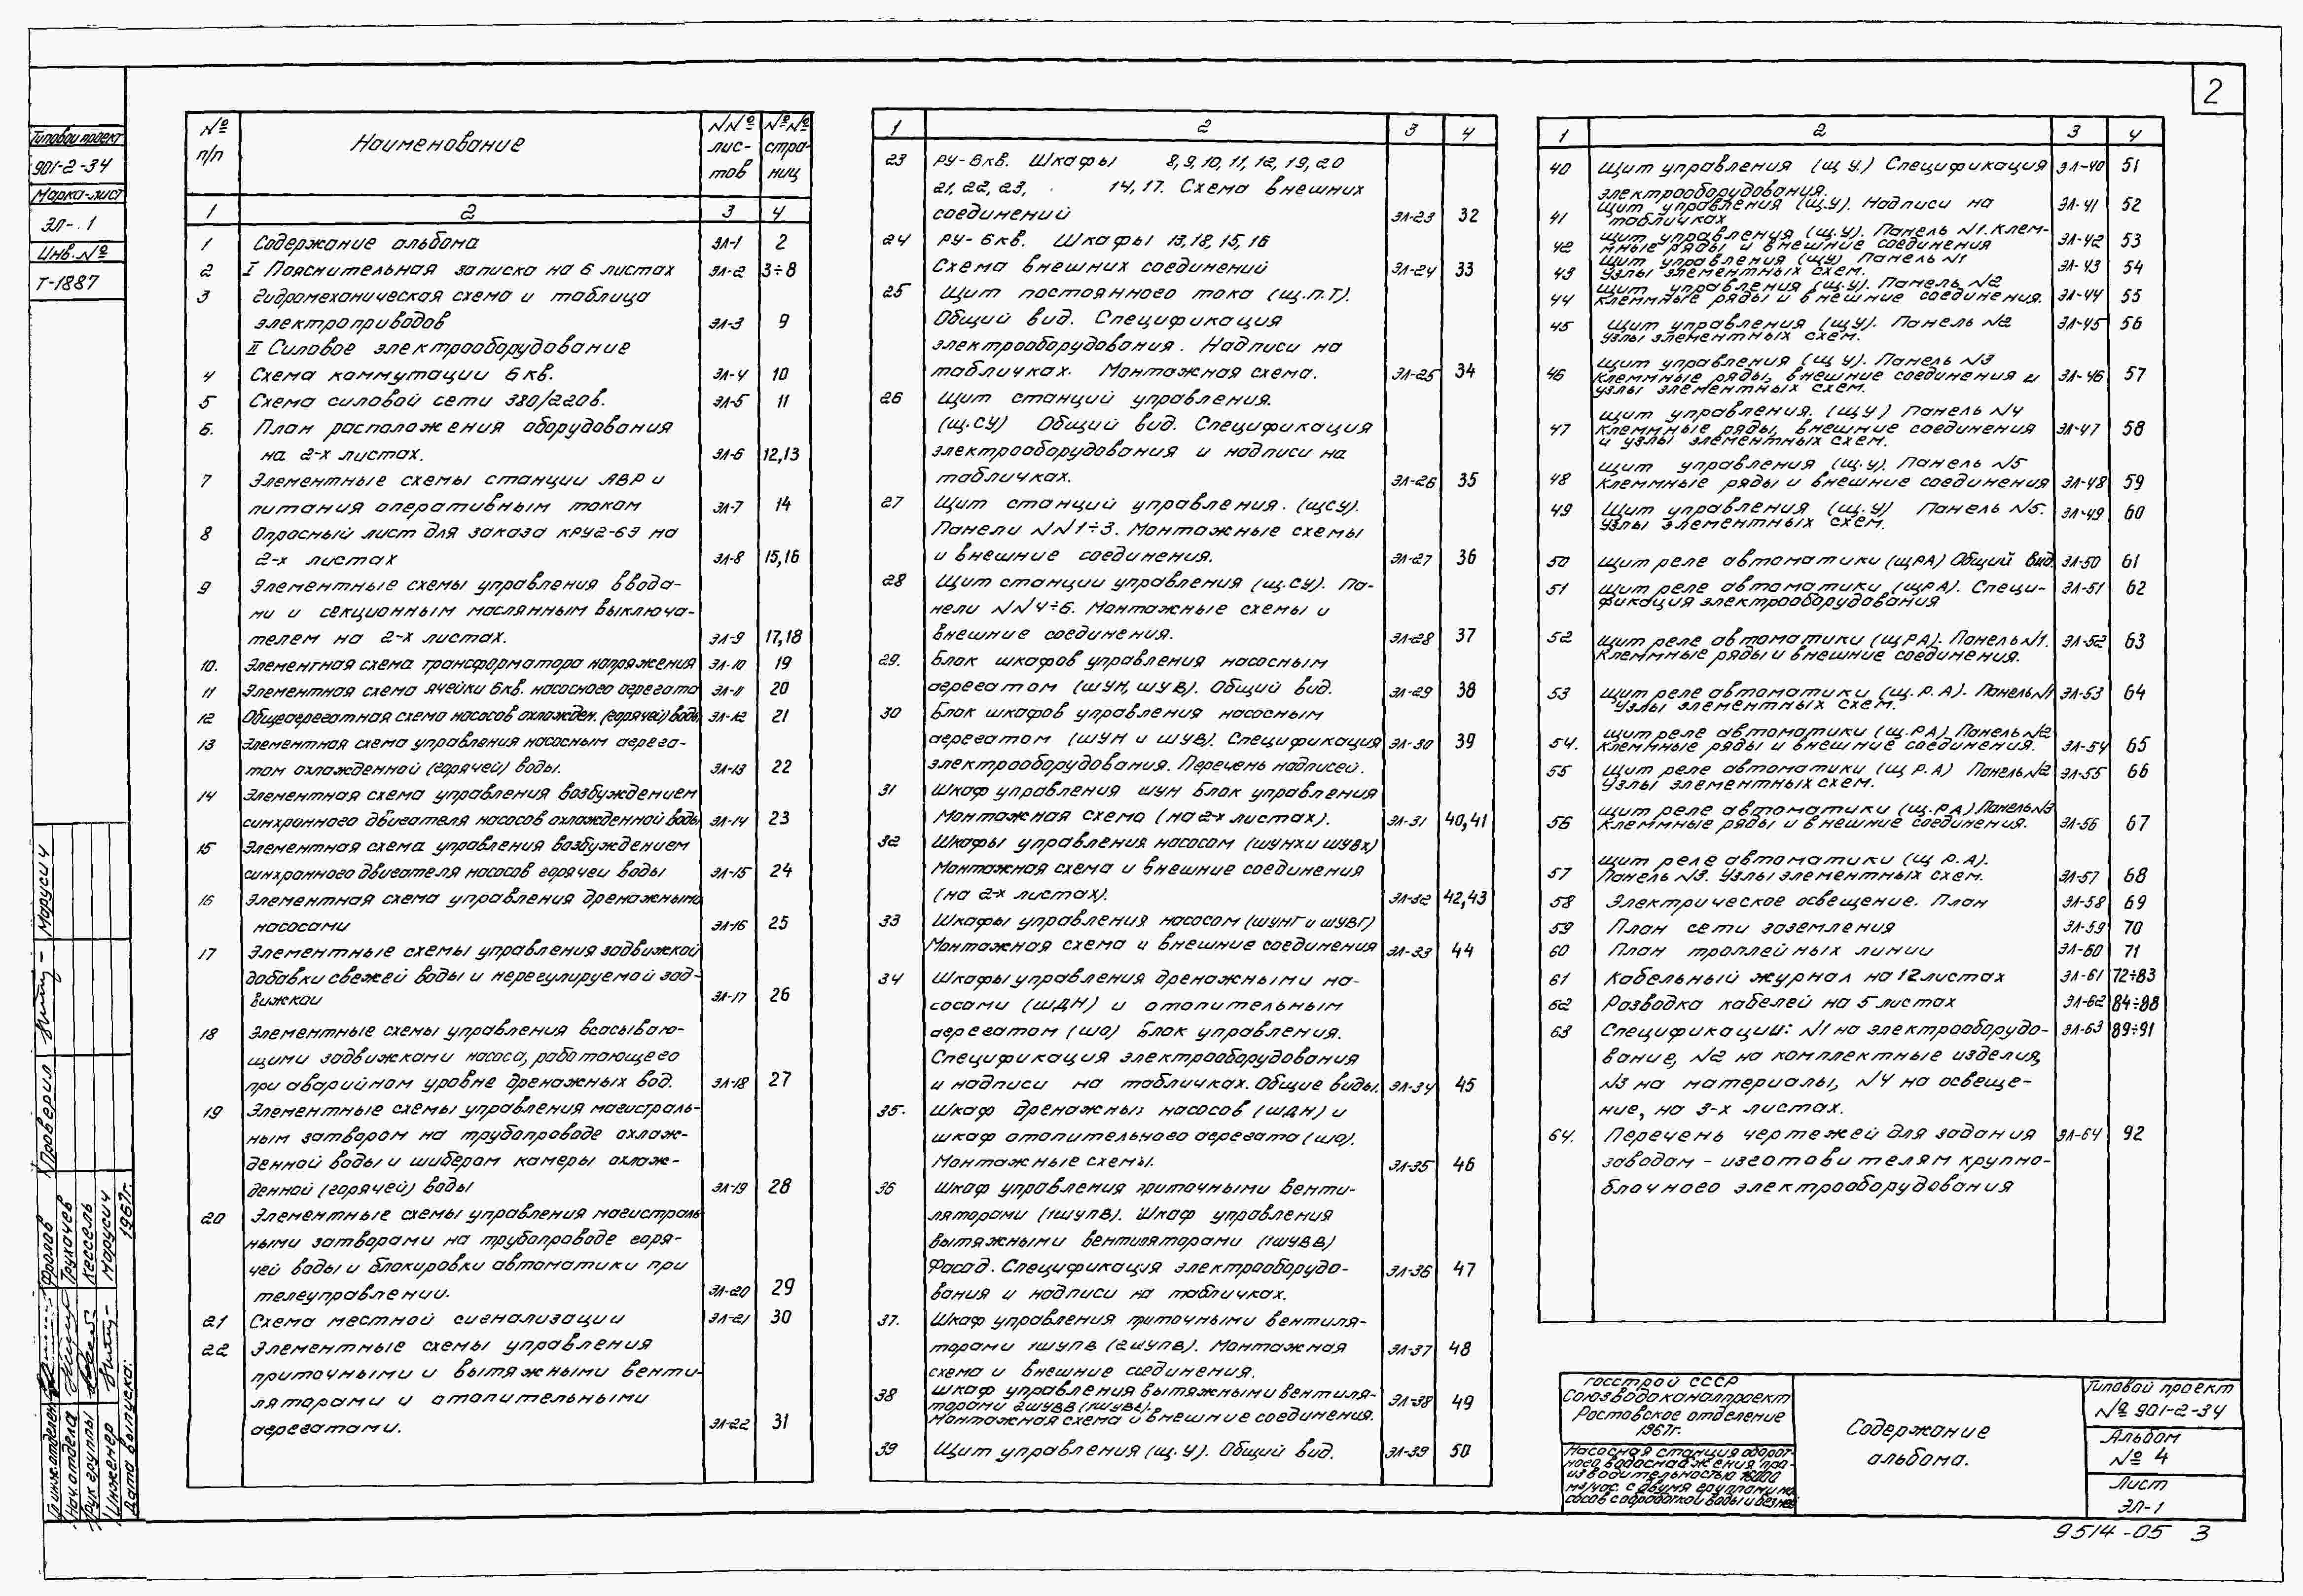 2
Типовой проект
901-2-34
Марка-лист
ЭЛ-1
Инв. №
Т-1887
№ п/п
Наименование
№№ лис-тов
№№ стра-ниц
1 2 3 4
1 Содержание альбома ЭЛ-1 2
2 I Пояснительная записка на 6 листах ЭЛ-2 3÷8
3 Гидромеханическая схема и таблица
электроприводов ЭЛ-3 9
II Силовое электрооборудование
4 Схема коммутации 6кв. ЭЛ-4 10
5 Схема силовой сети 380/220в. ЭЛ-5 11
6. План расположения оборудования
на 2-х листах. ЭЛ-6 12,13
7 Элементные схемы станции АВР и
питания оперативным током ЭЛ-7 14
8 Опросный лист для заказа КРУ2-6Э на
2-х листах ЭЛ-8 15,16
9 Элементные схемы управления ввода-
ми и секционным маслянным выключа-
телем на 2-х листах. ЭЛ-9 17,18
10. Элементная схема трансформатора напряжения ЭЛ-10 19
11 Элементная схема ячейки 6кв. насосного агрегата ЭЛ-11 20
12 Общеагрегатная схема насосов охлажден. (горячей) воды ЭЛ-12 21
13 Элементная схема управления насосным агрега-
том охлажденной (горячей) воды. ЭЛ-13 22
14 Элементная схема управления возбуждением
синхронного двигателя насосов охлажденной воды ЭЛ-14 23
15 Элементная схема управления возбуждением
синхронного двигателя насосов горячей воды ЭЛ-15 24
16 Элементная схема управления дренажными
насосами ЭЛ-16 25
17 Элементные схемы управления задвижкой
добавки свежей воды и нерегулируемой зад-
вижкой ЭЛ-17 26
18 Элементные схемы управления всасываю-
щими задвижками насоса, работающего
при аварийном уровне дренажных вод. ЭЛ-18 27
19 Элементные схемы управления магистраль-
ным затвором на трубопроводе охлаж-
денной воды и шибером камеры охлаж-
денной (горячей) воды ЭЛ-19 28
20 Элементные схемы управления магистраль
ными затворами на трубопроводе горя-
чей воды и блокировки автоматики при
телеуправлении. ЭЛ-20 29
21 Схема местной сигнализации ЭЛ-21 30
22 Элементные схемы управления
приточными и вытяжными венти-
ляторами и отопительными
агрегатами. ЭЛ-22 31
1 2 3 4
23 РУ-6кв. Шкафы 8,9,10,11,12,19,20
21,22,23, 14,17. Схема внешних
соединений ЭЛ-23 32
24 РУ-6кв. Шкафы 13,18,15,16
Схема внешних соединений ЭЛ-24 33
25 Щит постоянного тока (щ.п.т).
Общий вид. Спецификация
электрооборудования. Надписи на
табличках. Монтажная схема. ЭЛ-25 34
26 Щит станций управления.
(щ.СУ) Общий вид. Спецификация
электрооборудования и надписи на
табличках. ЭЛ-26 35
27 Щит станций управления. (щСУ).
Панели NN1÷3. Монтажные схемы
и внешние соединения. ЭЛ-27 36
28 Щит станции управления (щ.СУ). Па-
нели NN4÷6. Монтажные схемы и
внешние соединения. ЭЛ-28 37
29. Блок шкафов управления насосным
агрегатом (ШУН, ШУВ). Общий вид. ЭЛ-29 38
30 Блок шкафов управления насосным
агрегатом (ШУН и ШУВ). Спецификация ЭЛ-30 39
электрооборудования. Перечень надписей.
31 Шкаф управления ШУН Блок управления
Монтажная схема (на 2-х листах). ЭЛ-31 40,41
32 Шкафы управления насосом (ШУНХ и ШУВХ)
Монтажная схема и внешние соединения
(на 2-х листах). ЭЛ-32 42,43
33 Шкафы управления насосом (ШУНГ и ШУВГ)
Монтажная схема и внешние соединения ЭЛ-33 44
34 Шкафы управления дренажными на-
сосами (ШДН) и отопительным
агрегатом (ШО) Блок управления.
Спецификация электрооборудования
и надписи на табличках. Общие виды. ЭЛ-34 45
35. Шкаф дренажных насосов (ШДН) и
шкаф отопительного агрегата (ШО).
Монтажные схемы. ЭЛ-35 46
36 Шкаф управления приточными венти-
ляторами (1ШУПВ). Шкаф управления
вытяжными вентиляторами (1ШУВВ)
Фасад. Спецификация электрооборудо- ЭЛ-36 47
вания и надписи на табличках.
37. Шкаф управления приточными вентиля-
торами 1ШУПВ (2ШУПВ). Монтажная ЭЛ-37 48
схема и внешние соединения.
38 Шкаф управления вытяжными вентиля- ЭЛ-38 49
торами 2ШУВВ (1ШУВВ).
Монтажная схема и внешние соединения.
39 Щит управления (щ.У). Общий вид. ЭЛ-39 50
1 2 3 4
40 Щит управления (щ У.) Спецификация ЭЛ-40 51
электрооборудования.
41 Щит управления (щ.У). Надписи на ЭЛ-41 52
табличках
42 Щит управления (щ.У). Панель N1. Клем- ЭЛ-42 53
мные ряды и внешние соединения
43 Щит управления (щУ) Панель N1 ЭЛ-43 54
Узлы элементных схем.
44 Щит управления (щ.У). Панель N2 ЭЛ-44 55
Клеммные ряды и внешние соединения.
45 Щит управления (щУ). Панель N2 ЭЛ-45 56
Узлы элементных схем.
46 Щит управления (щ У). Панель N3 ЭЛ-46 57
Клеммные ряды, внешние соединения и
узлы элементных схем.
47 Щит управления. (щУ) Панель N4 ЭЛ-47 58
Клеммные ряды, внешние соединения
и узлы элементных схем.
48 Щит управления (щ.У). Панель N5 ЭЛ-48 59
Клеммные ряды и внешние соединения
49 Щит управления (щ.У) Панель N5. ЭЛ-49 60
Узлы элементных схем.
50 Щит реле автоматики (щРА) Общий вид. ЭЛ-50 61
51 Щит реле автоматики (щРА). Специ- ЭЛ-51 62
фикация электрооборудования
52 Щит реле автоматики (щРА). Панель N1. ЭЛ-52 63
Клеммные ряды и внешние соединения.
53 Щит реле автоматики (щ.Р.А). Панель N1 ЭЛ-53 64
Узлы элементных схем.
54. Щит реле автоматики (щ.РА) Панель N2 ЭЛ-54 65
Клеммные ряды и внешние соединения.
55 Щит реле автоматики (щ Р.А) Панель N2 ЭЛ-55 66
Узлы элементных схем.
56 Щит реле автоматики (щ.РА) Панель N3 ЭЛ-56 67
Клеммные ряды и внешние соединения.
57 Щит реле автоматики (щ Р.А). ЭЛ-57 68
Панель N3. Узлы элементных схем.
58 Электрическое освещение. План ЭЛ-58 69
59 План сети заземления ЭЛ-59 70
60 План троллейных линии ЭЛ-60 71
61 Кабельный журнал на 12 листах ЭЛ-61 72÷83
62 Разводка кабелей на 5 листах ЭЛ-62 84÷88
63 Спецификации: N1 на электрооборудо- ЭЛ-63 89÷91
вание, N2 на комплектные изделия,
N3 на материалы, N4 на освеще-
ние, на 3-х листах.
64. Перечень чертежей для задания ЭЛ-64 92
заводам-изготовителям крупно-
блочного электрооборудования
Госстрой СССР
Союзводоканалпроект
Ростовское отделение
1967г.
Насосная станция оборот-
ного водоснабжения про-
изводительностью 16000
м3/час. с двумя группами на-
сосов с обработкой воды и без нее
Содержание
альбома.
Типовой проект
№ 901-2-34
Альбом
№ 4
Лист
ЭЛ-1
9514-05 3
Гл.инж.отделен. Фролов
Нач.отдела Трухачев
Рук группы Кессель
Инженер Марусич
Дата выпуска: 1967г.
Проверил Марусич